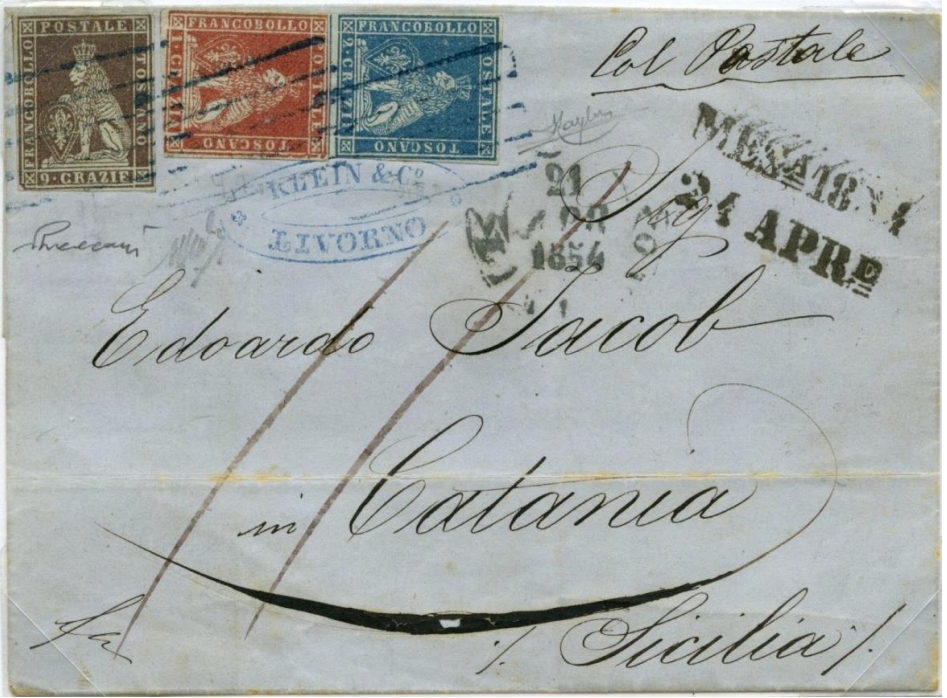 FRANCOBOLLO POSTALE TOSCANO
9 · CRAZIE
FRANCOBOLLO POSTALE TOSCANO
1 · CRAZIA
FRANCOBOLLO POSTALE TOSCANO
2 · CRAZIE
Col Postale
KLEIN & Cº
LIVORNO
21
1854
MESA 18
24 APRE
Sig
Edoardo Jacob
in Catania
./. Sicilia ./.